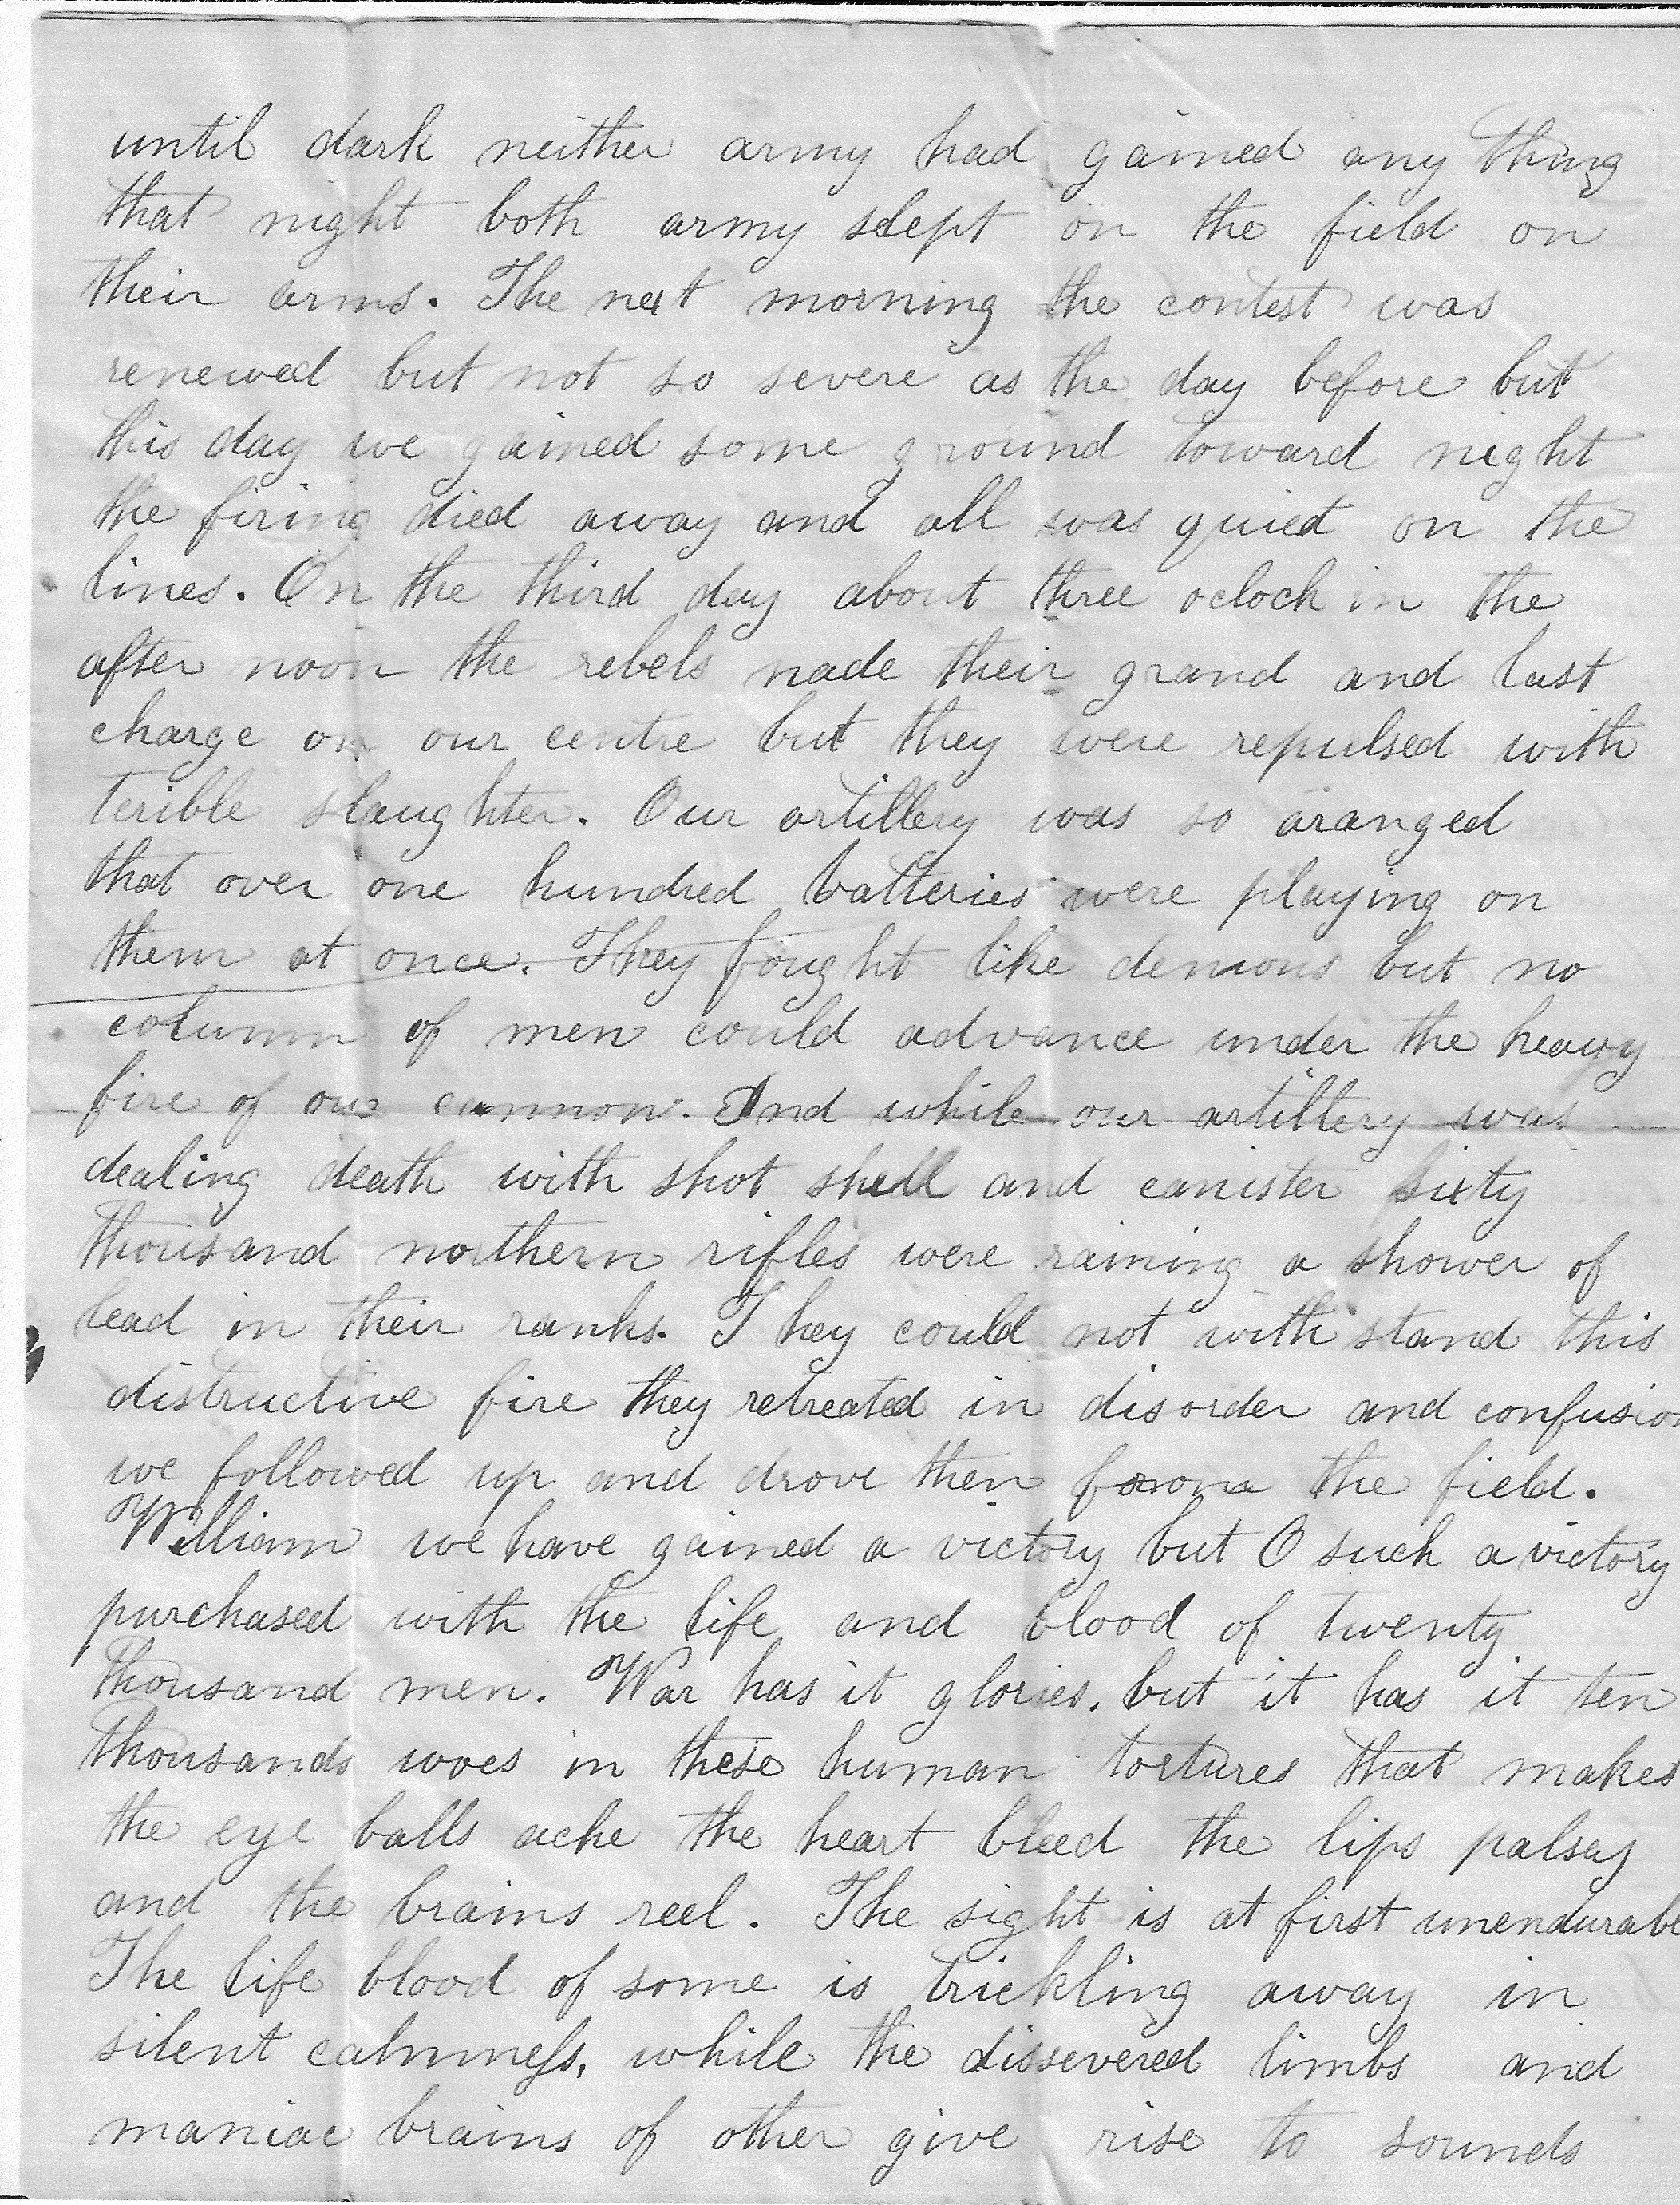 until dark neither army had gained any thing
that night both army slept on the field on
their arms. The next morning the contest was
renewed but not so severe as the day before but
this day we gained some ground toward night
the firing died away and all was quiet on the
lines. On the third day about three oclock in the
after noon the rebels made their grand and last
charge on our centre but they were repulsed with
terible slaughter. Our artillery was so aranged
that over one hundred batteries were playing on
them at once. They fought like demons but no
column of men could advance under the heavy
fire of our cannon. And while our artillery was
dealing death with shot shell and canister sixty
thousand northern rifles were raining a shower of
lead in their ranks. They could not with stand this
distructive fire they retreated in disorder and confusion
we followed up and drove then from the field.
William we have gained a victory but O such a victory
purchased with the life and blood of twenty
thousand men. War has it glories. but it has it ten
thousands woes in these human tortures that makes
the eye balls ache the heart bleed the lips palsey
and the brains reel. The sight is at first unendurabl
The life blood of some is trickling away in
silent calmness, while the dissevered limbs and
maniac brains of other give rise to sounds